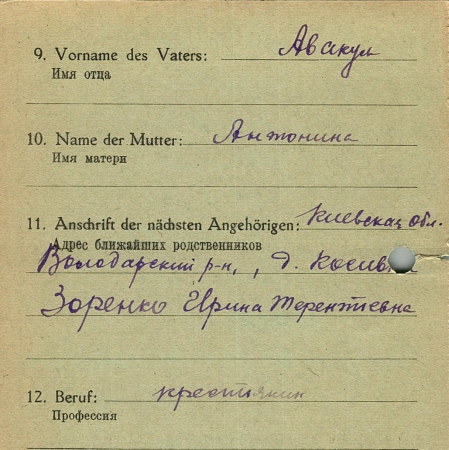 9. Vorname des Vaters: Авакум
Имя отца
10. Name der Mutter: Антонина
Имя матери
11. Anschrift der nächsten Angehörigen: Киевская обл.
Адрес ближайших родственников
Володарский р-н, д. Косивка
Зоренко Ирина Терентиевна
12. Beruf: крестьянин
Профессия